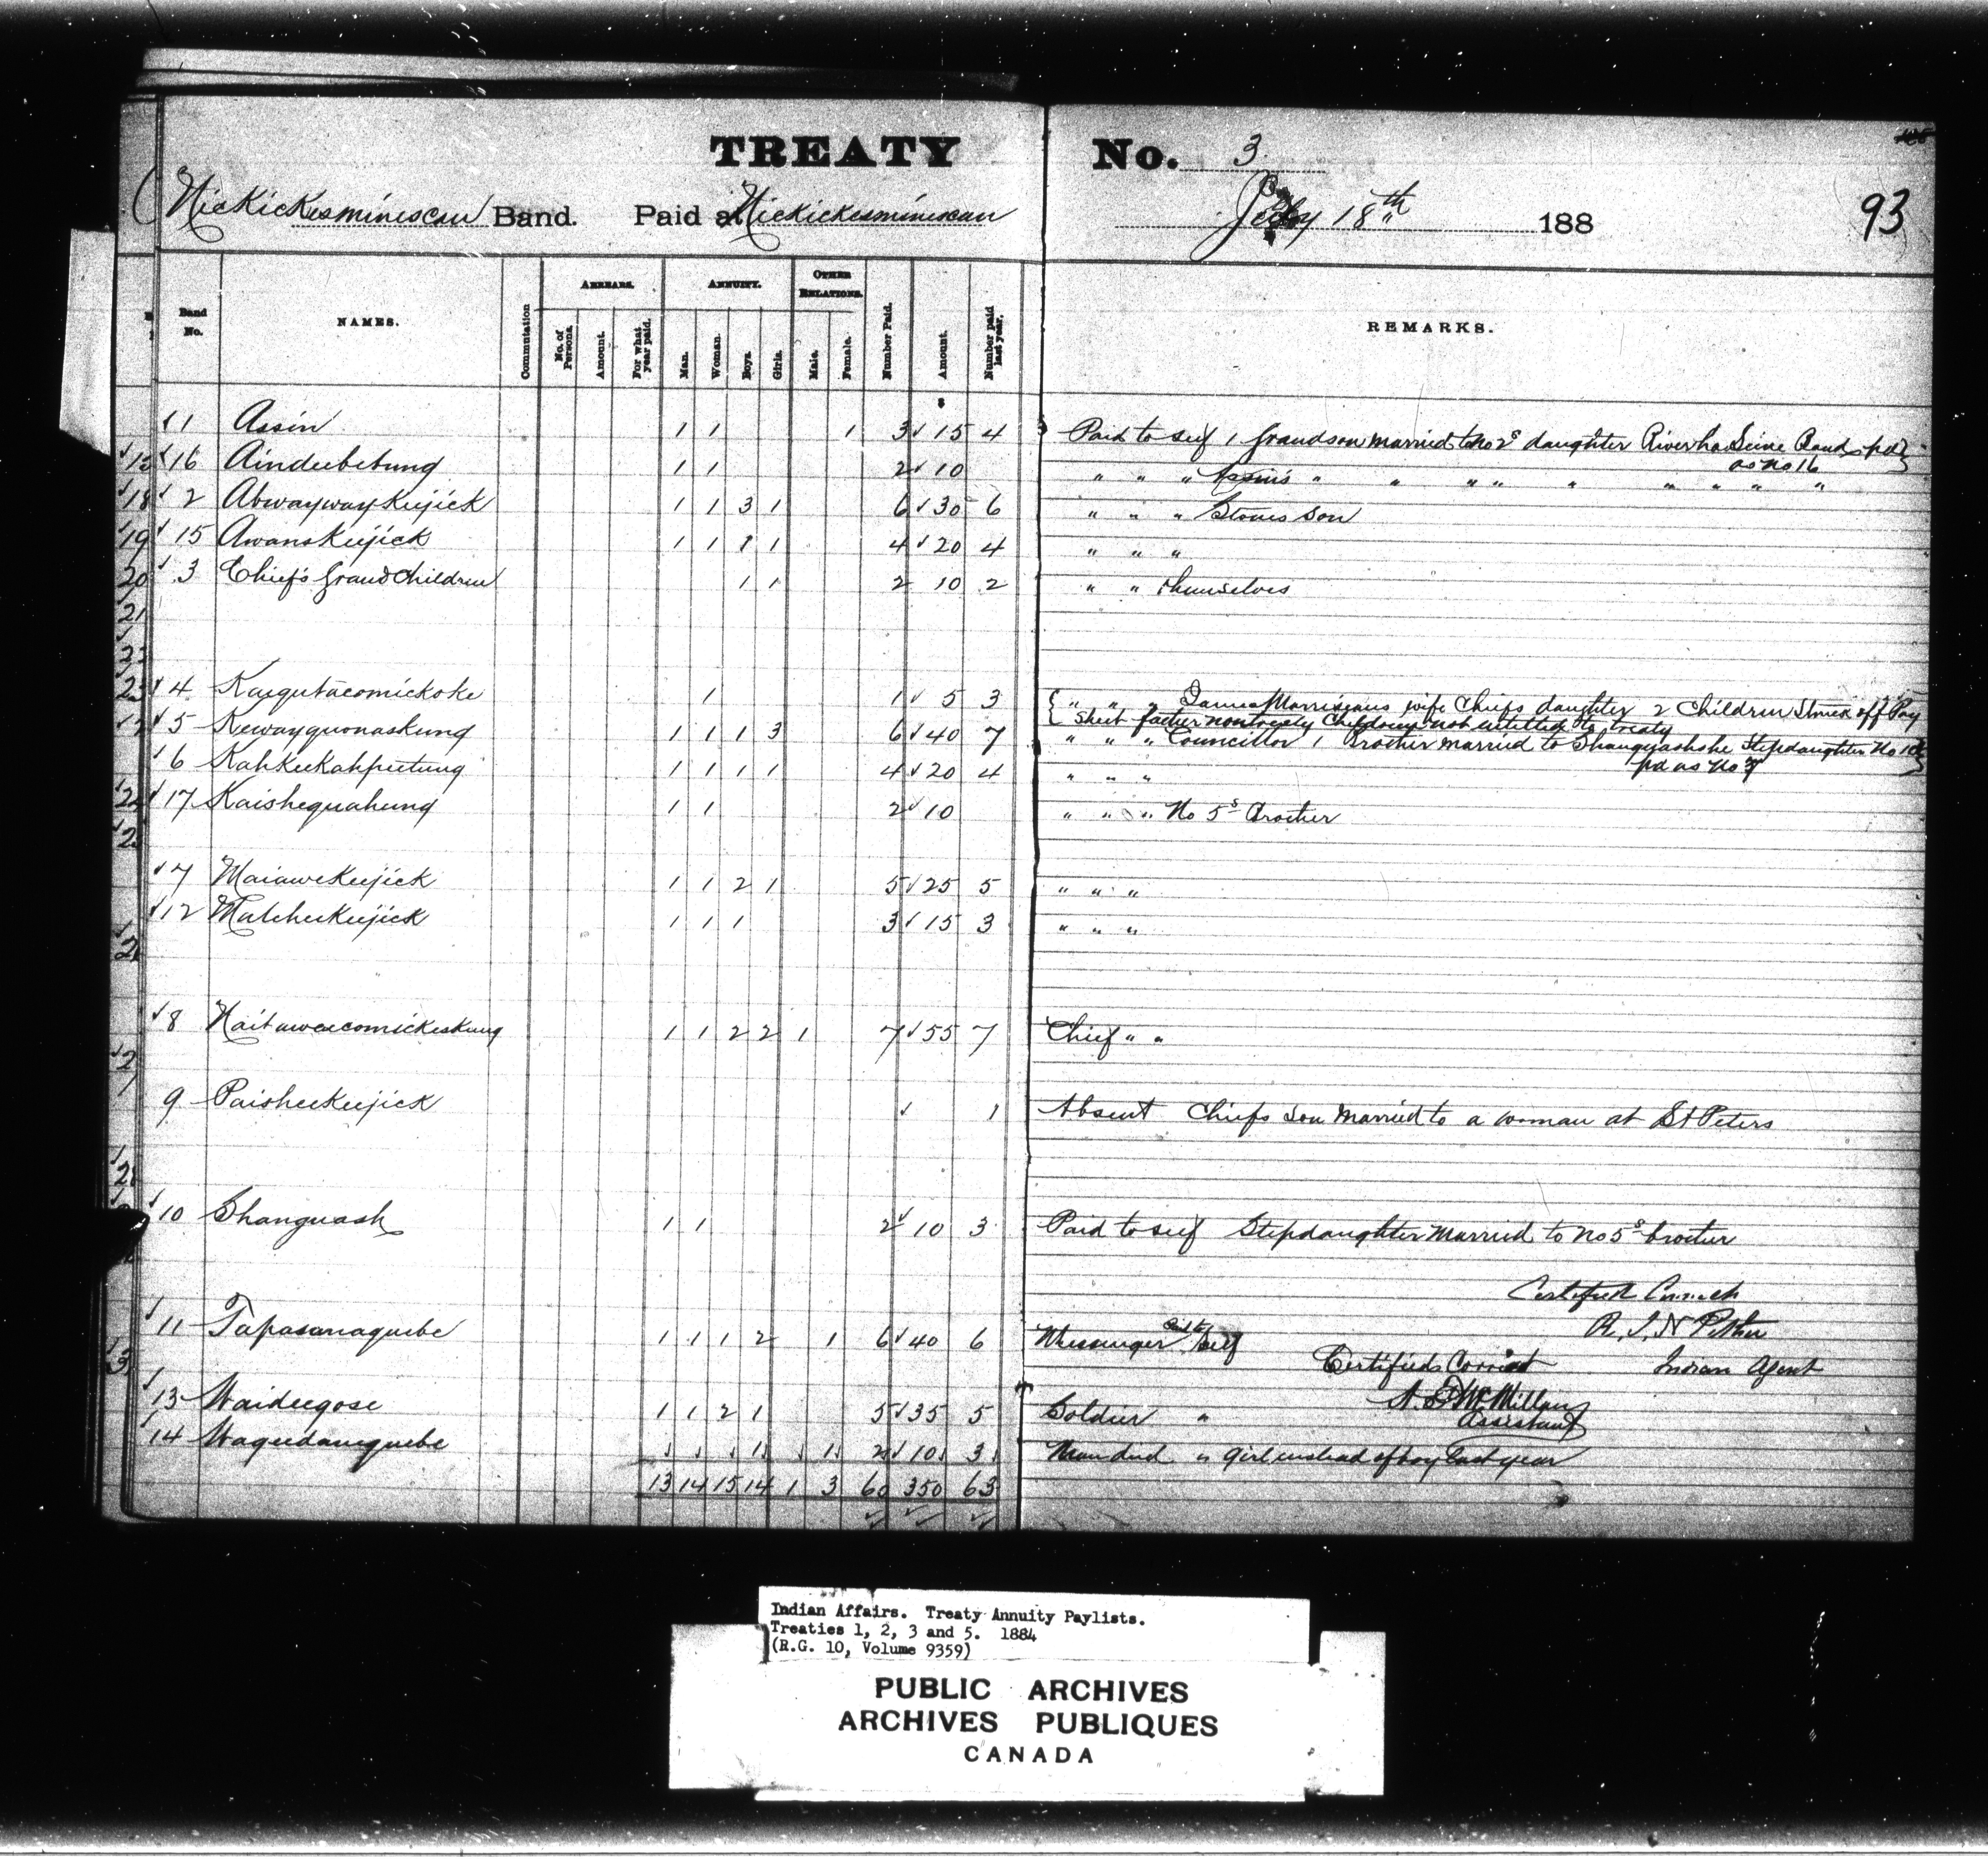 TREATY No. 3
Nickickesminescan Band. Paid at Nickickesminescan July 18th 188
93
Band No. NAMES. Commutation ARREARS. No. of Persons. Amount. For what year paid. ANNUITY. Man. Woman. Boys. Girls. OTHER RELATIONS. Male. Female. Number Paid. Amount. Number paid last year. REMARKS.
$
1 Assin 1 1 1 3 15 4 Paid to self 1 Grandson married to No 2s daughter River La Seine Band pd
as no 16
16 Aindubetung 1 1 2 10 " " " Assin's " " " " " " " " "
2 Abwaywaykeejick 1 1 3 1 6 30 6 " " " Stones Son
15 Awanskeejick 1 1 1 1 4 20 4 " " "
3 Chief's Grand Children 1 1 2 10 2 " " themselves
4 Kaigutacomickoke 1 1 5 3 " " " James Morriseaus wife Chiefs daughter 2 Children Struck off Pay
Sheet father nontreaty Children not entitled to treaty
5 Kewayquonaskung 1 1 1 3 6 40 7 " " " Councillor 1 Brother married to Shanguashshe Stepdaughter No 10
pd as No 17
6 Kahkeekahpeetung 1 1 1 1 4 20 4 " " "
17 Kaishequahung 1 1 2 10 " " " No 5s Brother
7 Maiawekeejick 1 1 2 1 5 25 5 " " "
12 Matcheekeejick 1 1 1 3 15 3 " " "
8 Naitawaycomickeskung 1 1 2 2 1 7 55 7 Chief " "
9 Paisheekeejick 1 Absent Chiefs Son Married to a woman at St Peters
10 Shanguash 1 1 2 10 3 Paid to self Stepdaughter Married to No 5s brother
Certified Correct
11 Tapasanaquebe 1 1 1 2 1 6 40 6 Messenger Paid to Self
R. J. N Pither
Certified Correct Indian Agent
13 Waideegose 1 1 2 1 5 35 5 Soldier " A. McMillan
Assistant
14 Waguedanguebe 1 1 2 10 3 Man dead " girl instead of boy last year
13 14 15 14 1 3 60 350 63
Indian Affairs. Treaty Annuity Paylists.
Treaties 1, 2, 3 and 5. 1884
(R.G. 10, Volume 9359)
PUBLIC ARCHIVES
ARCHIVES PUBLIQUES
CANADA